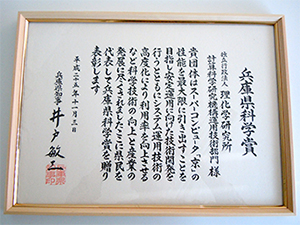 兵庫県科学賞
独立行政法人 理化学研究所
計算科学研究機構運用技術部門 様
貴団体はスーパーコンピュータ「京」の
性能を最大限に引き出すことを
目指し安定運用に向けた技術開発を
行うとともにシステム運用技術の
高度化により利用率を向上させる
など科学技術の向上と産業の
発展に尽くされましたここに県民を
代表して兵庫県科学賞を贈り
表彰します
平成二十五年十一月三日
兵庫県知事 井戸敏三